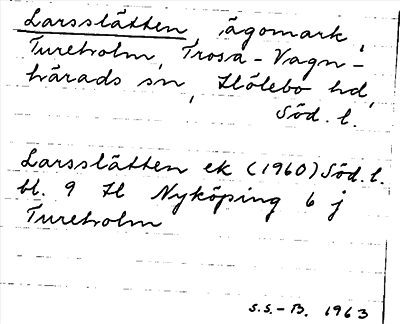 Larsslätten, ägomark,
Tureholm, Trosa-Vagn-
härads sn, Hölebo hd,
Söd. l.
Larsslätten ek (1960) Söd. l.
bl. 9 H Nyköping 6 j
Tureholm
S.S.-B. 1963